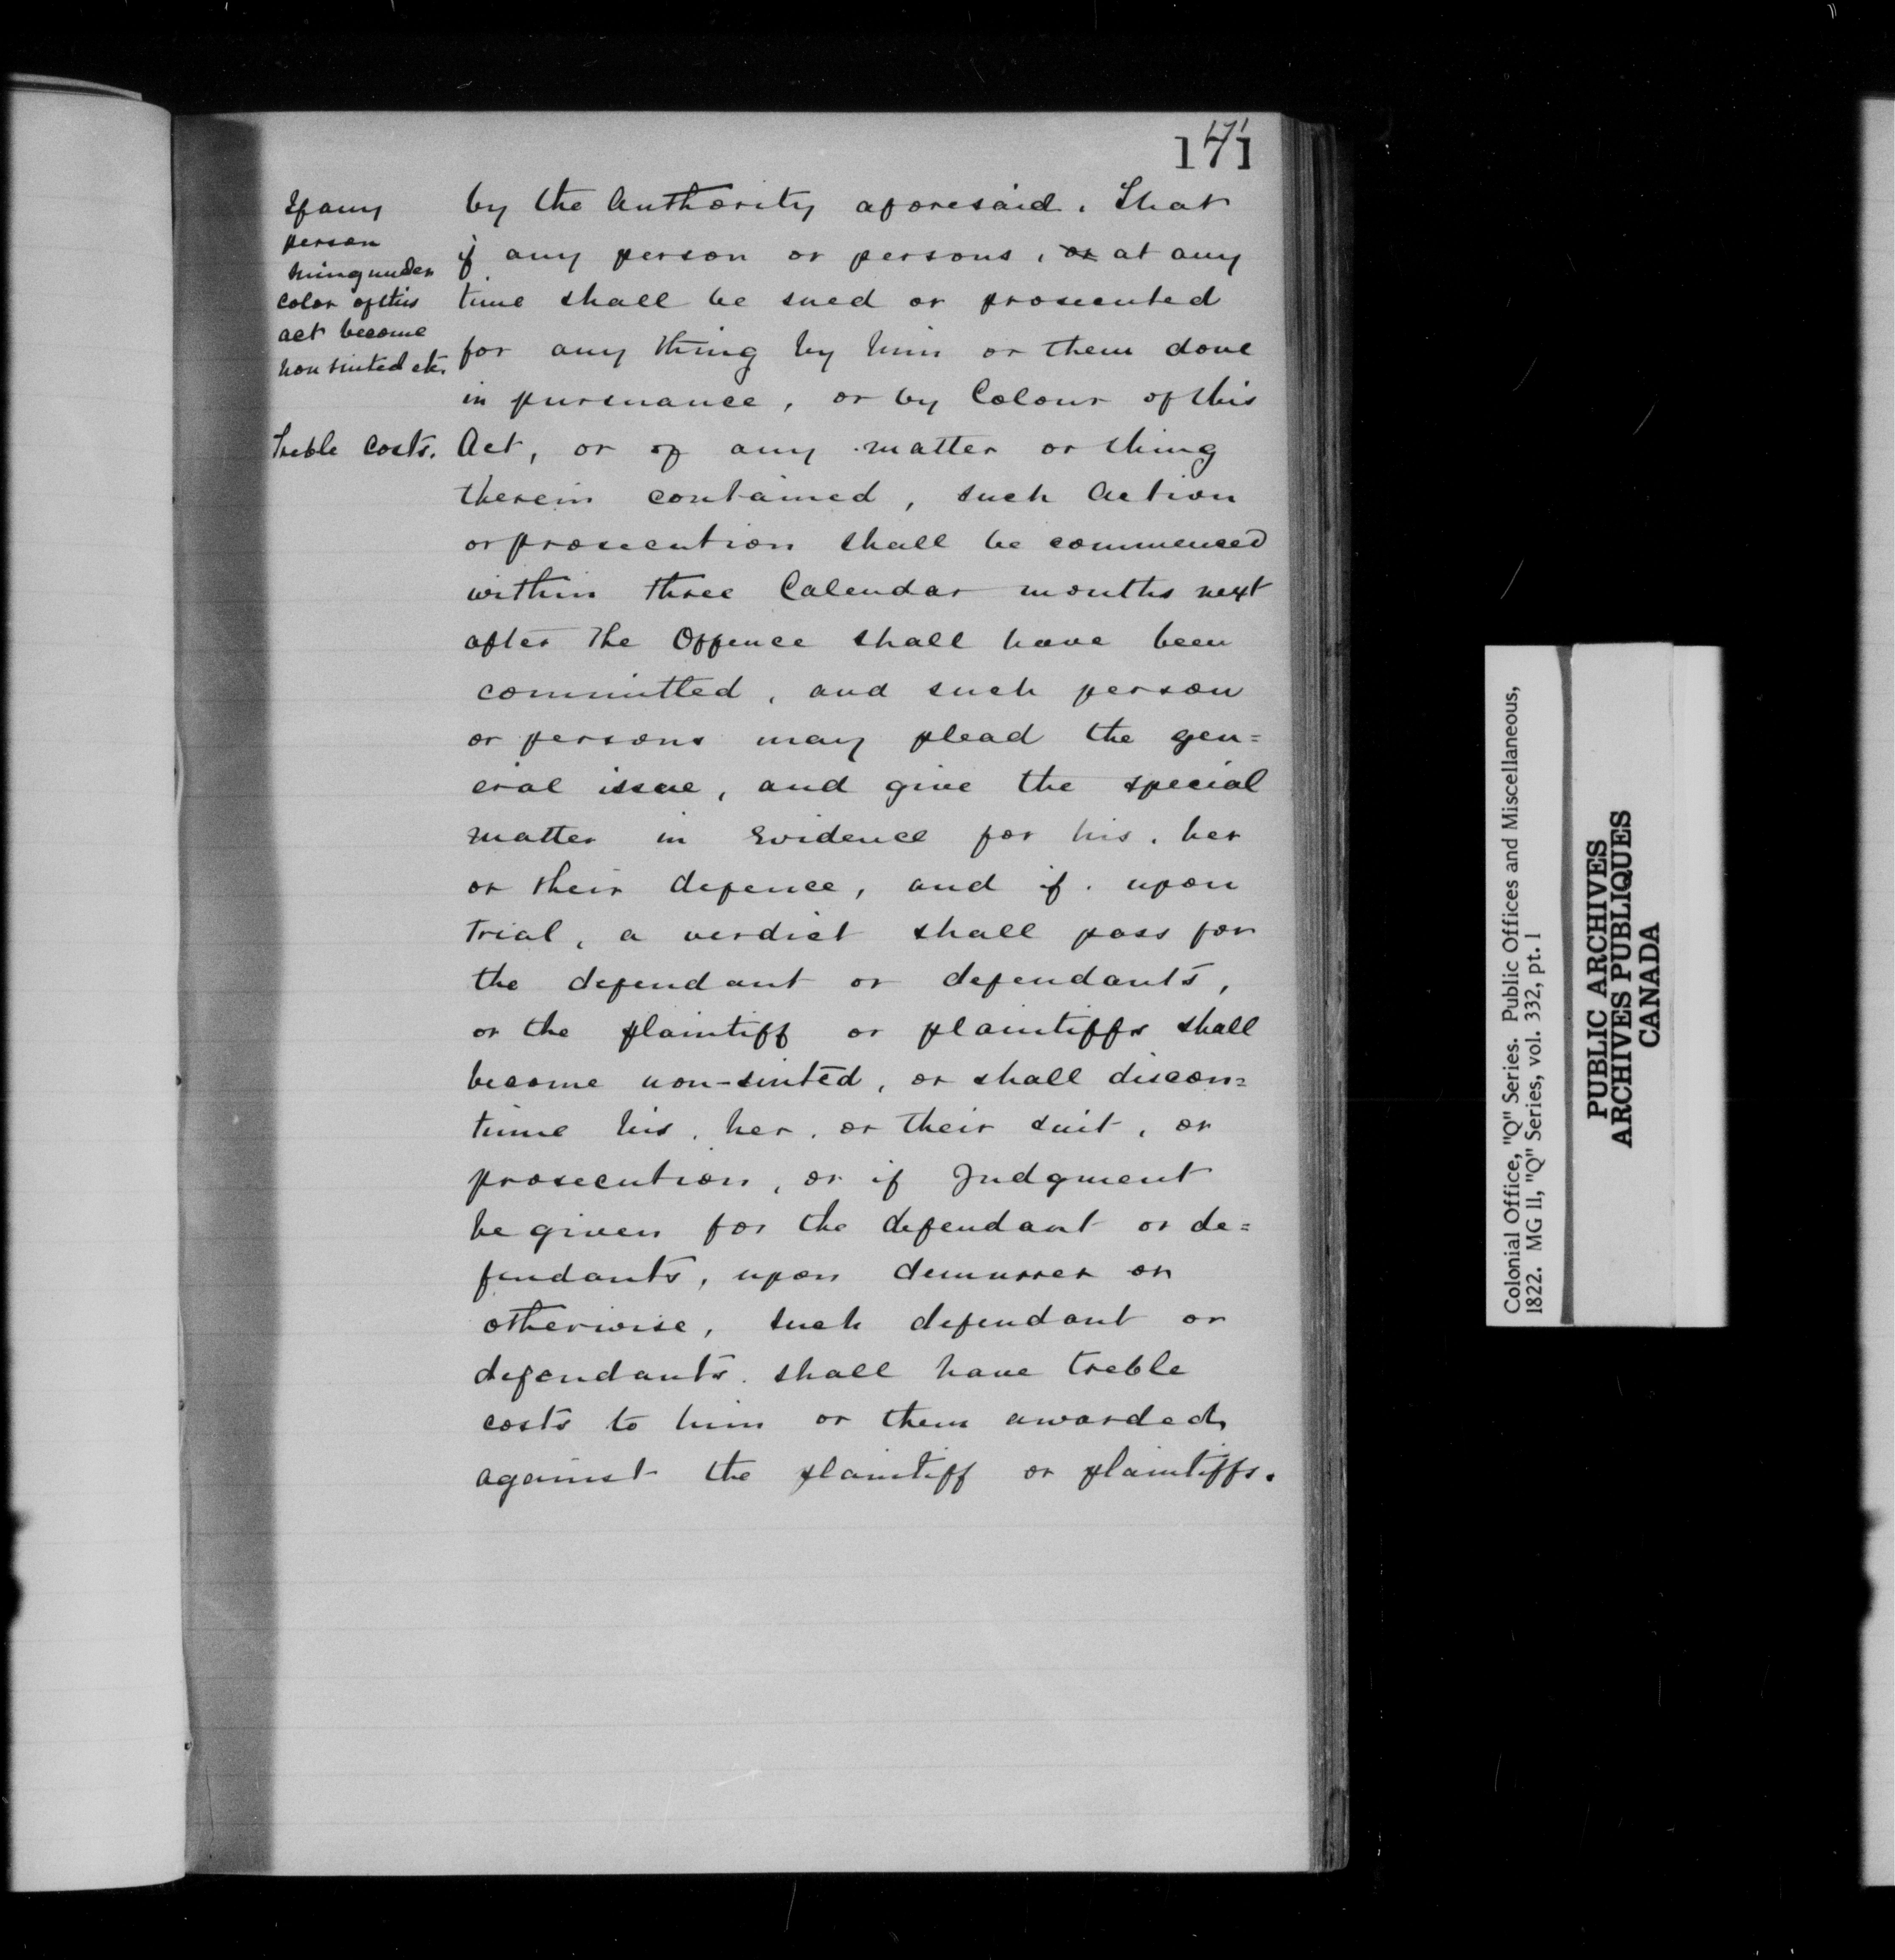 171
If any
person
suing under
color of this
act become
non suited etc.
Treble Costs.
by the Authority aforesaid. That
if any person or persons, or at any
time shall be sued or prosecuted
for any thing by him or them done
in pursuance, or by Colour of this
Act, or of any matter or thing
therein contained, such Action
or prosecution shall be commenced
within three Calendar months next
after The Offence shall have been
committed, and such person
or persons may plead the gen=
eral issue, and give the special
matter in Evidence for his, her
or their defence, and if, upon
Trial, a verdict shall pass for
the defendant or defendants,
or the plaintiff or plaintiffs shall
become non-suited, or shall discon=
tinue his, her, or their suit, or
prosecution, or if Judgment
be given for the defendant or de=
fendants, upon demurrer or
otherwise, such defendant or
defendants, shall have treble
costs to him or them awarded,
against the plaintiff or plaintiffs.
Colonial Office, "Q" Series. Public Offices and Miscellaneous,
1822. MG 11, "Q" Series, vol. 332, pt. 1
PUBLIC ARCHIVES
ARCHIVES PUBLIQUES
CANADA